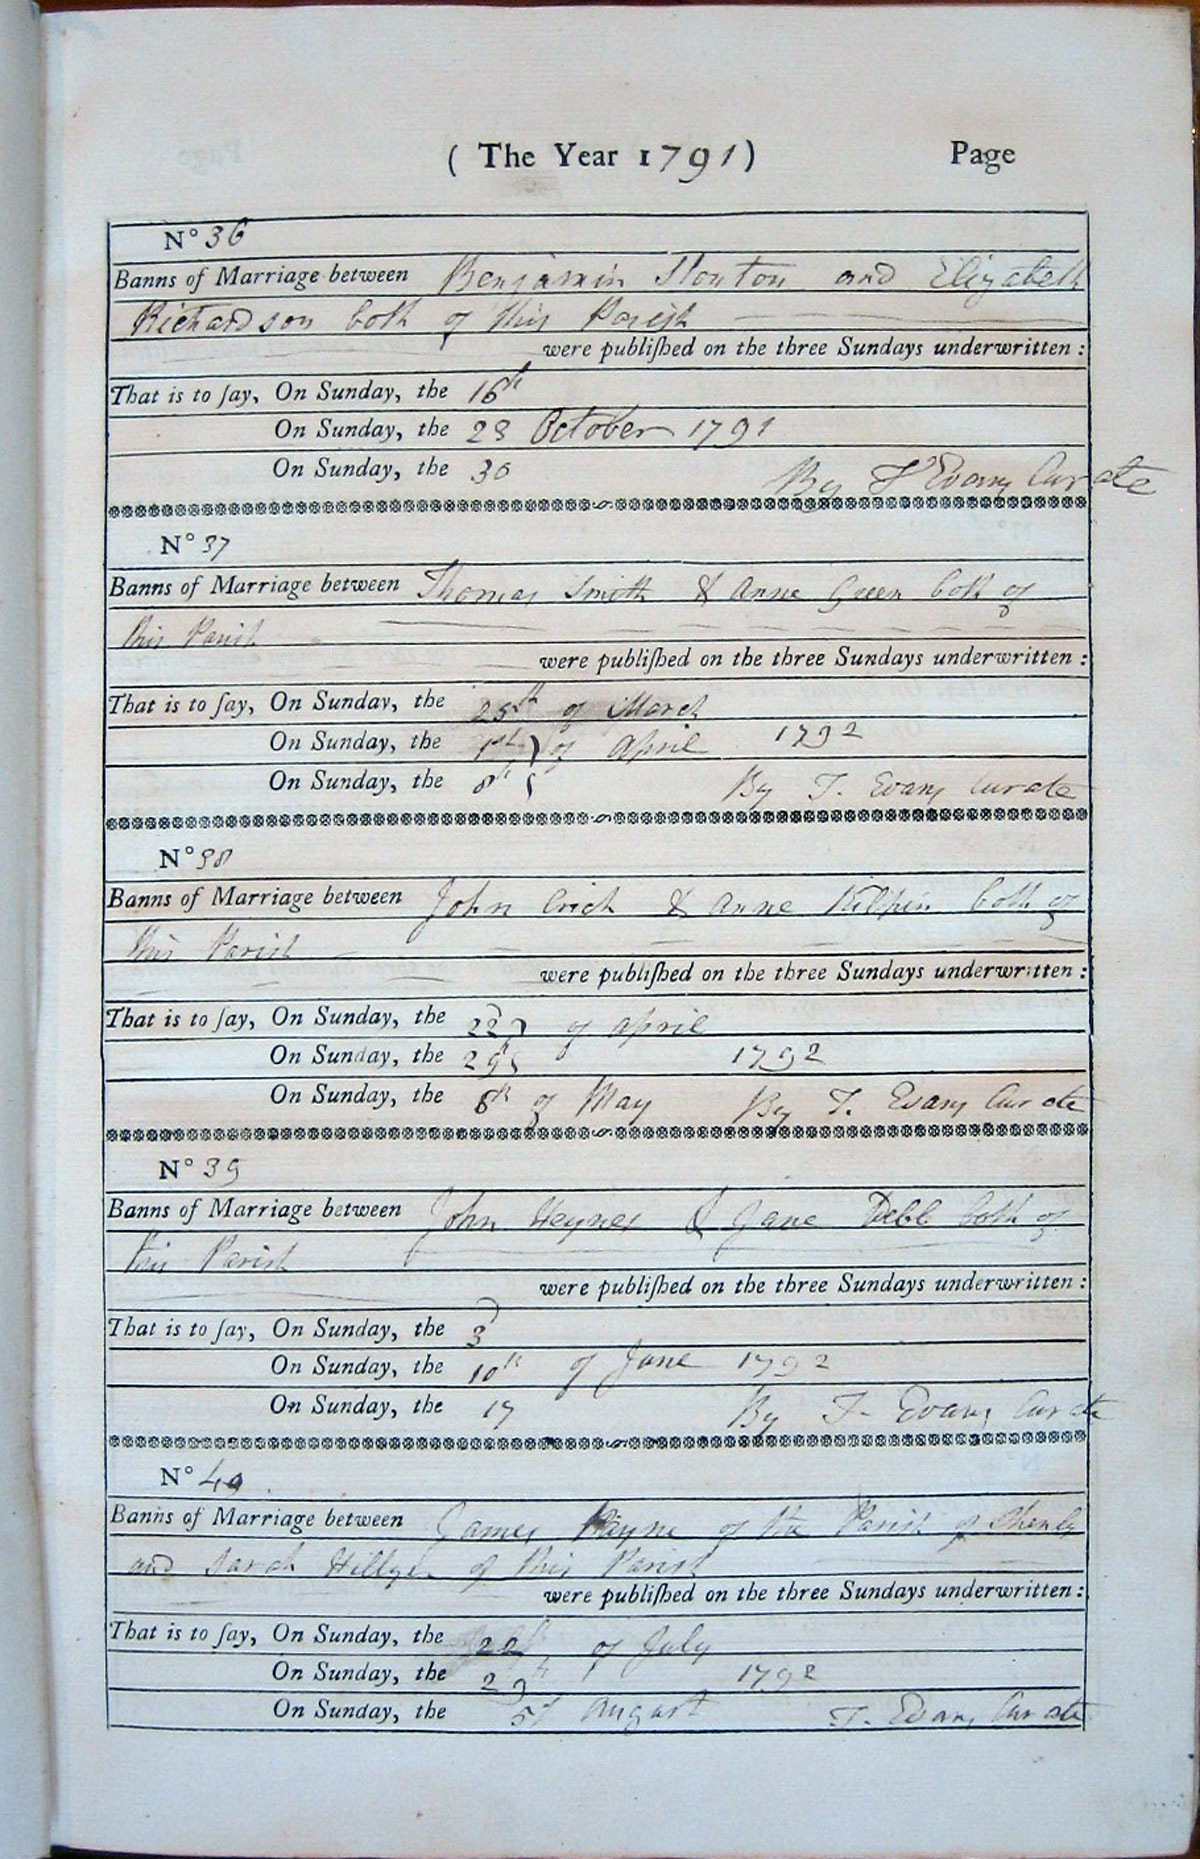 ( The Year 1791) Page
N° 36
Banns of Marriage between Benjamin Stonton and Elizabeth
Richardson both of this Parish
were publiſhed on the three Sundays underwritten :
That is to ſay, On Sunday, the 16th
On Sunday, the 23 October 1791
On Sunday, the 30 By T Evans Curate
N° 37
Banns of Marriage between Thomas Smith & Anne Green both of
this Parish
were publiſhed on the three Sundays underwritten :
That is to ſay, On Sunday, the 25th of March
On Sunday, the 1st of April 1792
On Sunday, the 8th By T. Evans Curate
N° 38
Banns of Marriage between John Crick & Anne Kilpin both of
this Parish
were publiſhed on the three Sundays underwritten :
That is to ſay, On Sunday, the 22 of April
On Sunday, the 29 1792
On Sunday, the 6th of May By T. Evans Curate
N° 39
Banns of Marriage between John Heynes & Jane Debb both of
this Parish
were publiſhed on the three Sundays underwritten :
That is to ſay, On Sunday, the 3d
On Sunday, the 10th of June 1792
On Sunday, the 17 By T. Evans Curate
N° 40
Banns of Marriage between James Payne of the Parish of Shenly
and Sarah of this Parish
were publiſhed on the three Sundays underwritten :
That is to ſay, On Sunday, the 22 of July
On Sunday, the 29th 1792
On Sunday, the 5th August T. Evans Curate